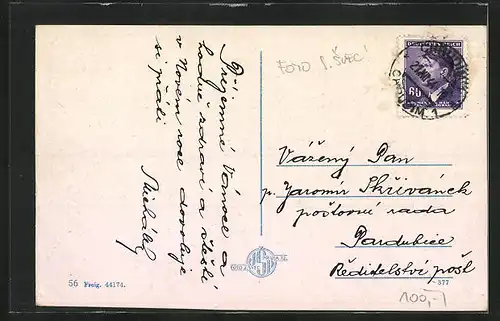 Příjemné Vánoce a
hodně zdraví a štěstí
v Novém roce dovoluje
si přáti
FOTO J. ŠVEC
DEUTSCHES REICH
60
Vážený Pan
p. Jaromír Skřivánek
poštovní rada
Pardubice
Ředitelství pošt
56 Freig. 44174.
377
100,-